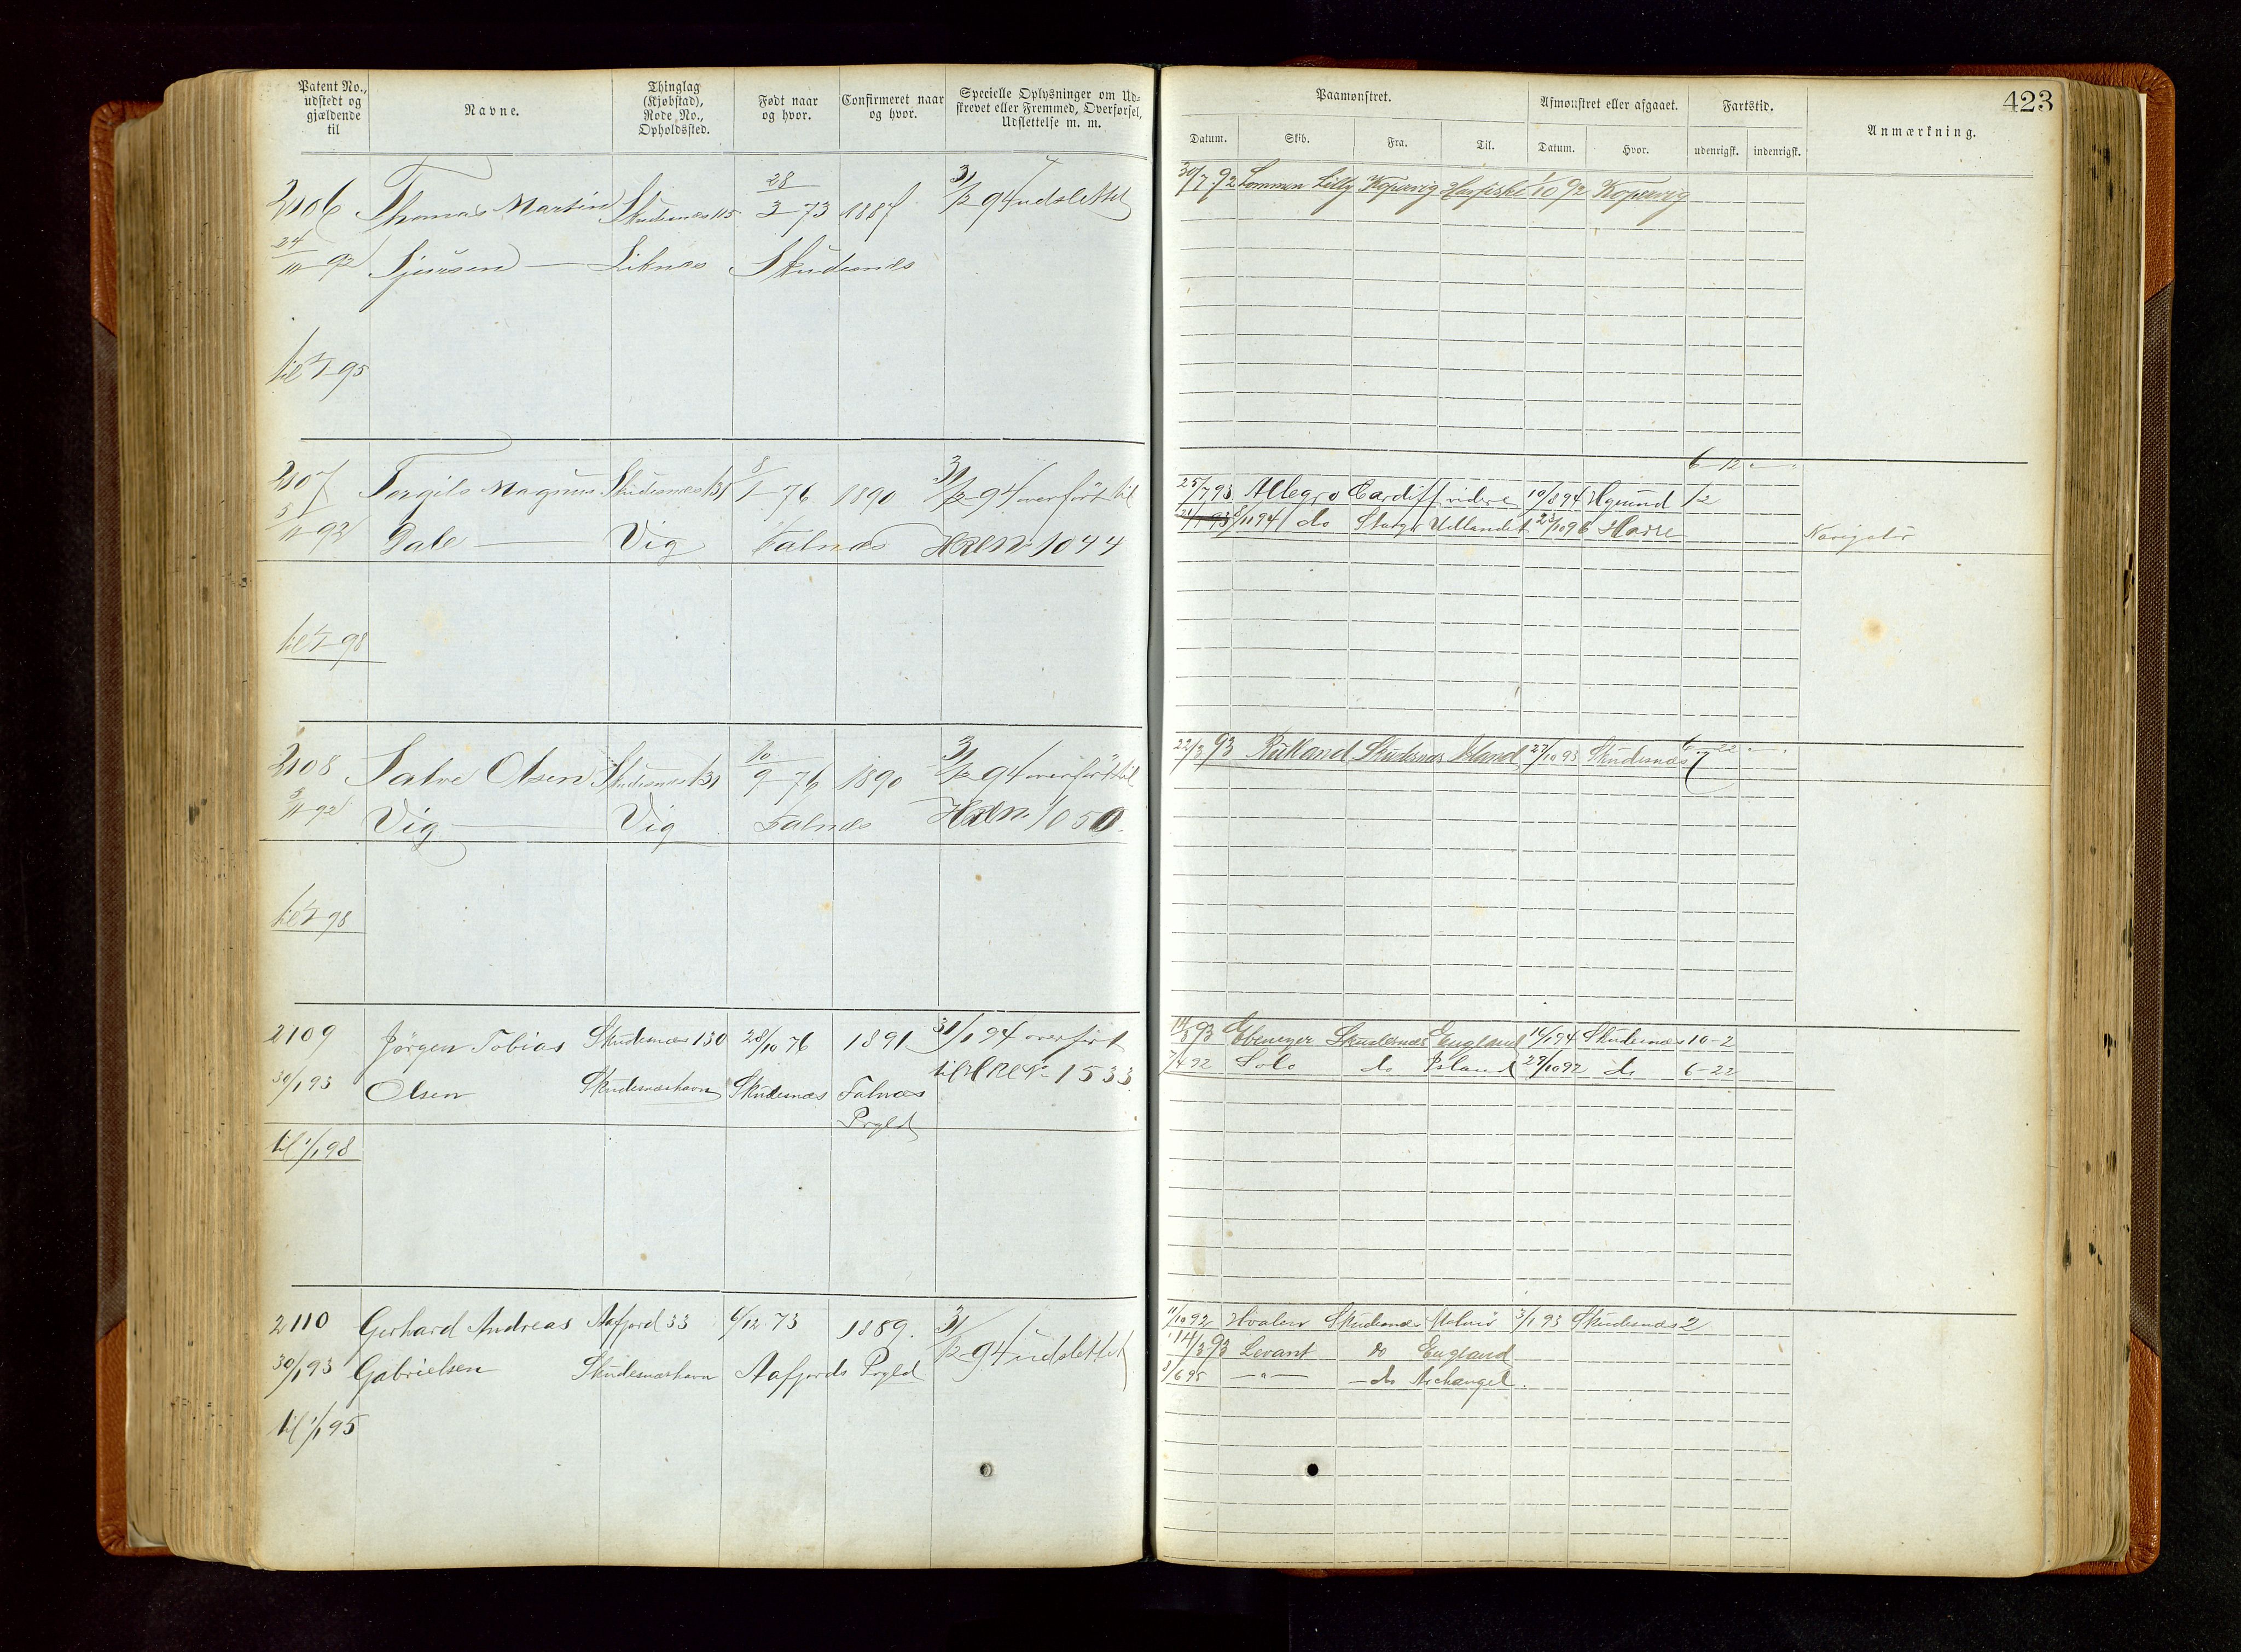 Patent No., udstedt og gjældende til
Navne.
Thinglag (Kjøbstad), Rode No., Opholdssted.
Født naar og hvor.
Confirmeret naar og hvor.
Specielle Oplysninger om Udskrevet eller Fremmed, Overførsel, Udslettelse m. m.
Paamønstret.
Afmønstret eller afgaaet.
Fartstid.
Anmærkning.
423
Datum.
Skib.
Fra.
Til.
Datum.
Hvor.
udenrigsk.
indenrigsk.
2106 Thomas Martin Skudesnes 115 28/3-73 1887 31/12-94 udslettet
24/11-92 Sjursen Liknes Skudesnes
til 1/1-95
30/7 92 Lilly Kopervig 1/10 92 Kopervig
2107 Torgils Magnus Skudesnes 131 8/1-76 1890 31/12-94 overført til
5/11-92 Dale Vig Falnæs HRN 1044
til 1/1-98
6-12
25/7 93 Allegro Cardiff videre 10/8 94 12
8/11 94 do Udlandet 23/10 96 Havre
2108 Salve Olsen Skudesnes 131 10/9-76 1890 31/12 94 overført til
5/11-92 Vig Vig Falnæs 1050
til 1/1-98
22/3 93 Rutland Skudesnes Island 27/10 93 Skudesnes 6-22
7
2109 Jørgen Tobias Skudesnæs 130 28/10 76 1891 31/1 94 overført
30/1 93 Olsen Skudesnæshavn Skudesnæs Falnæs til HRN 1533
Prgld
til 1/1 98
14/3 93 Ebenezer Skudesnæs England 16/1 94 Skudesnæs 10-2
7/4 92 Solo do Island 29/10 92 do 6-22
2110 Gerhard Andreas Aafjord 33 6/12 73 1889. 31/12-94 udslettet
30/1 93 Gabrielsen Skudesnæshavn Aafjords Prgld
til 1/1 95
11/10 92 Hvalen Skudesnæs Malmø 3/1 93 Skudesnæs 2
14/3 93 Levant do England
8/6 95 — " — do Archangel.